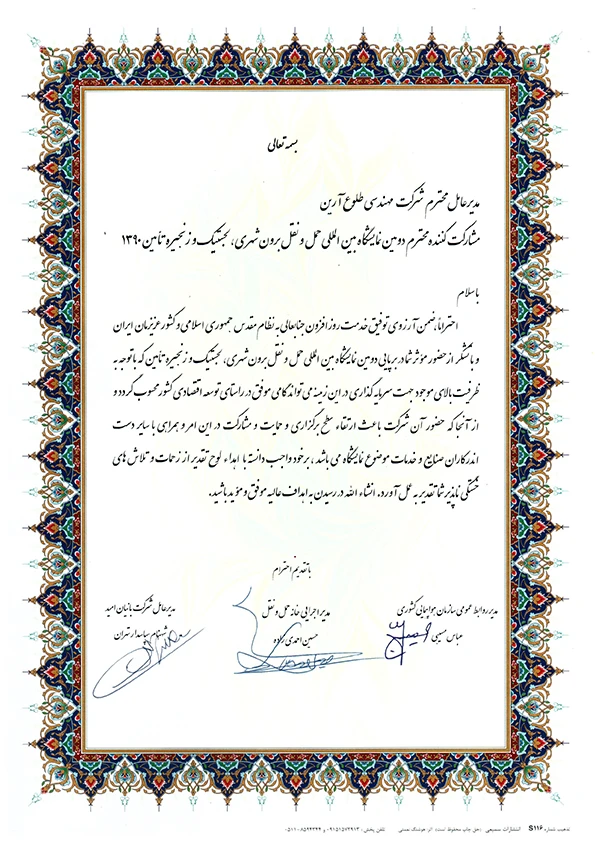 بسمه تعالی
مدیر عامل محترم شرکت مهندسی طلوع آرین
مشارکت کننده محترم دومین نمایشگاه بین المللی حمل و نقل برون شهری، لجستیک و زنجیره تأمین ۱۳۹۰
با سلام
احتراماً، ضمن آرزوی توفیق خدمت روز افزون جنابعالی به نظام مقدس جمهوری اسلامی و کشور عزیزمان ایران
و با تشکر از حضور مؤثر شما در برپایی دومین نمایشگاه بین المللی حمل و نقل برون شهری، لجستیک و زنجیره تأمین که با توجه به
ظرفیت بالای موجود جهت سرمایه گذاری در این زمینه می تواند گامی موفق در راستای توسعه اقتصادی کشور محسوب گردد و
از آنجا که حضور آن شرکت باعث ارتقاء سطح برگزاری و حمایت و مشارکت در این امر و همراهی با سایر دست
اندرکاران صنایع و خدمات موضوع نمایشگاه می باشد، برخود واجب دانسته با اهداء لوح تقدیر از زحمات و تلاش های
خستگی ناپذیر شما تقدیر به عمل آورد. انشاء الله در رسیدن به اهداف عالیه موفق و مؤید باشید.
با تقدیم احترام
مدیر روابط عمومی سازمان هواپیمایی کشوری
عباس مسیبی
مدیر اجرایی خانه حمل و نقل
حسین احمدی زاده
مدیر عامل شرکت بانیان امید
شهنام سپاسدار تهران
تذهیب شماره S۱۱۶ انتشارات سمیعی (حق چاپ محفوظ است) اثر: هوشنگ نعمتی تلفن پخش: ۰۹۱۵۱۵۷۲۹۱۳ و ۸۵۲۴۳۲۴-۰۵۱۱